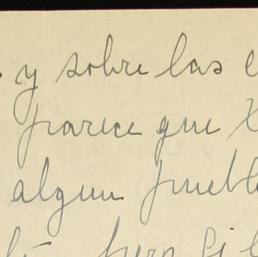 y sobre las
parece que
algun pueblo
pero